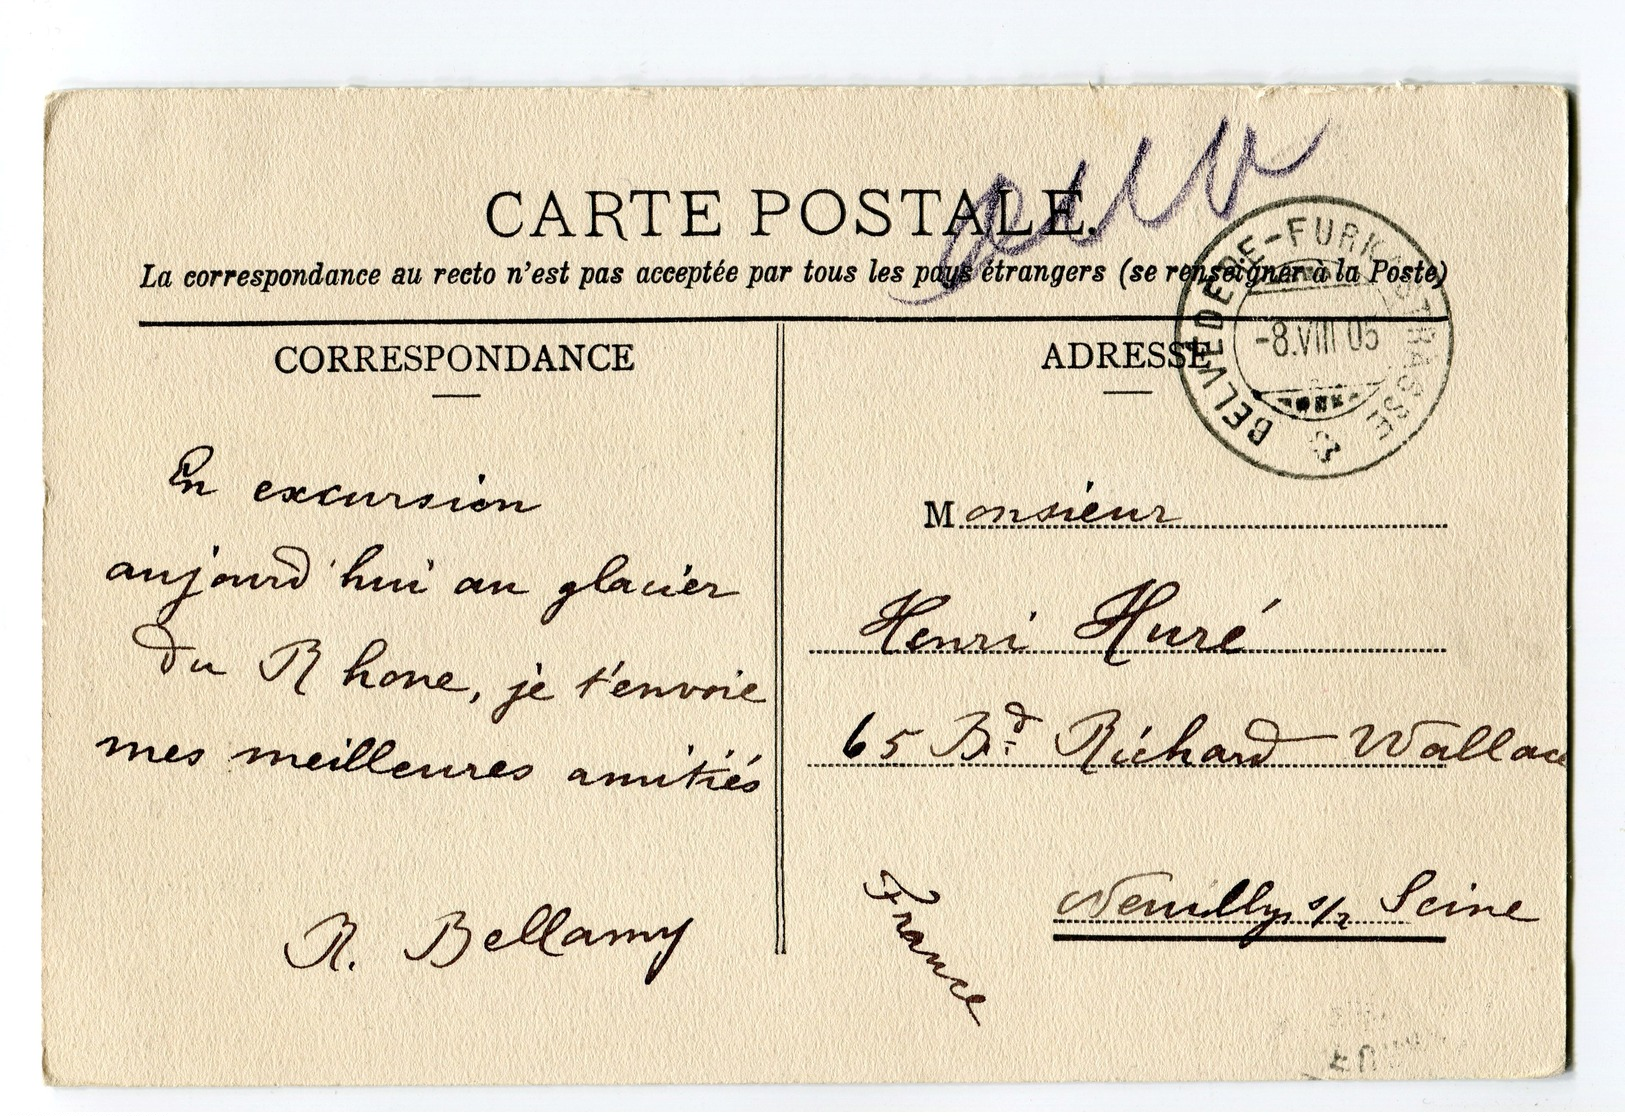 CARTE POSTALE.
La correspondance au recto n'est pas acceptée par tous les pays étrangers (se renseigner à la Poste)
BELVÉDÈRE-FURKASTRASSE
-8.VIII 05
CORRESPONDANCE
En excursion
aujourd'hui au glacier
du Rhone, je t'envoie
mes meilleures amitiés
R. Bellamy
ADRESSE
Monsieur
Henri Huré
65 Bd Richard Wallace
Neuilly s/r Seine
France